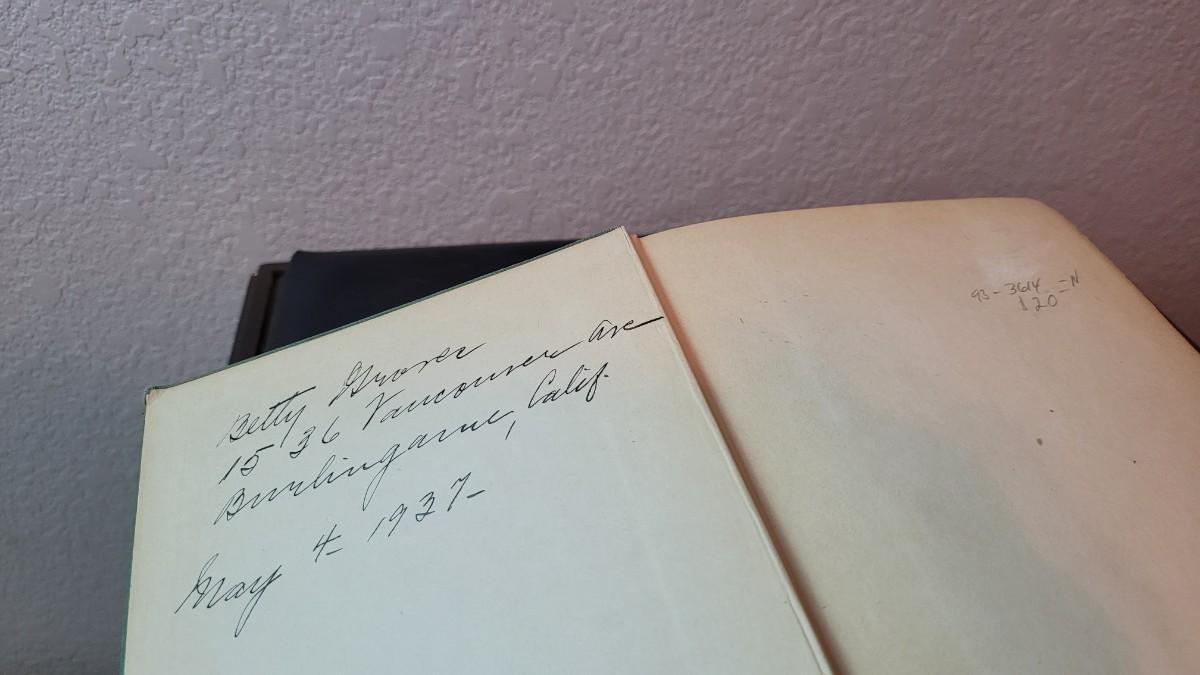 Betty Grover
1536 Vancouver Ave
Burlingame, Calif.
May 4 - 1937 -
93 - 3614 = N
120